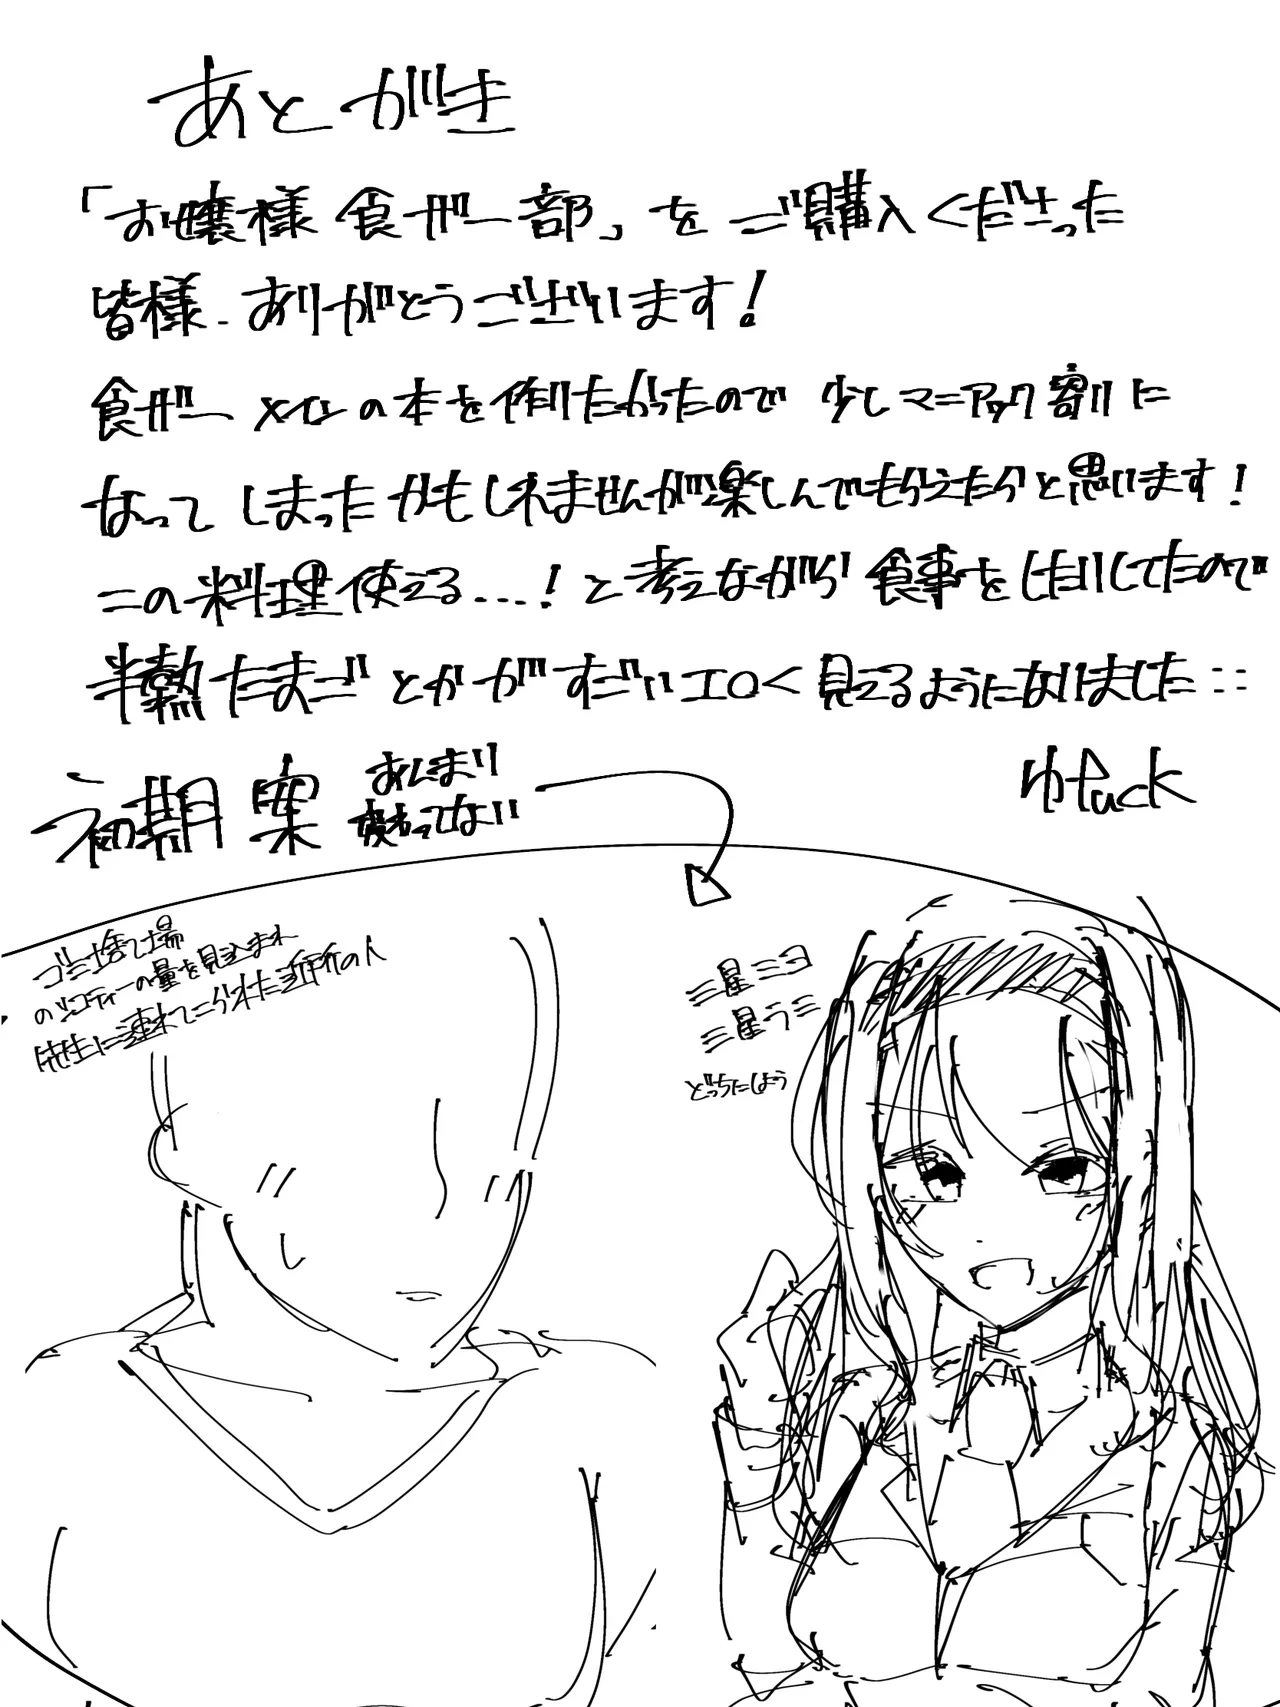 あとがき
「お嬢様食ザー部」をご購入くださった
皆様、ありがとうございます!
食ザーメインの本を作りたかったので少しマニアック寄りに
なってしまったかもしれませんが楽しんでもらえたらと思います!
この料理使える…!と考えながら食事をしたりしてたので
半熟たまごとかがすごいエロく見えるようになりました……
初期案
あんまり
変わってない
ゴミ捨て場
のジュコティーの量を見込まれ
先生に連れてこられた近所の人
三星ミコ
三星ラミ
どっちにしよう